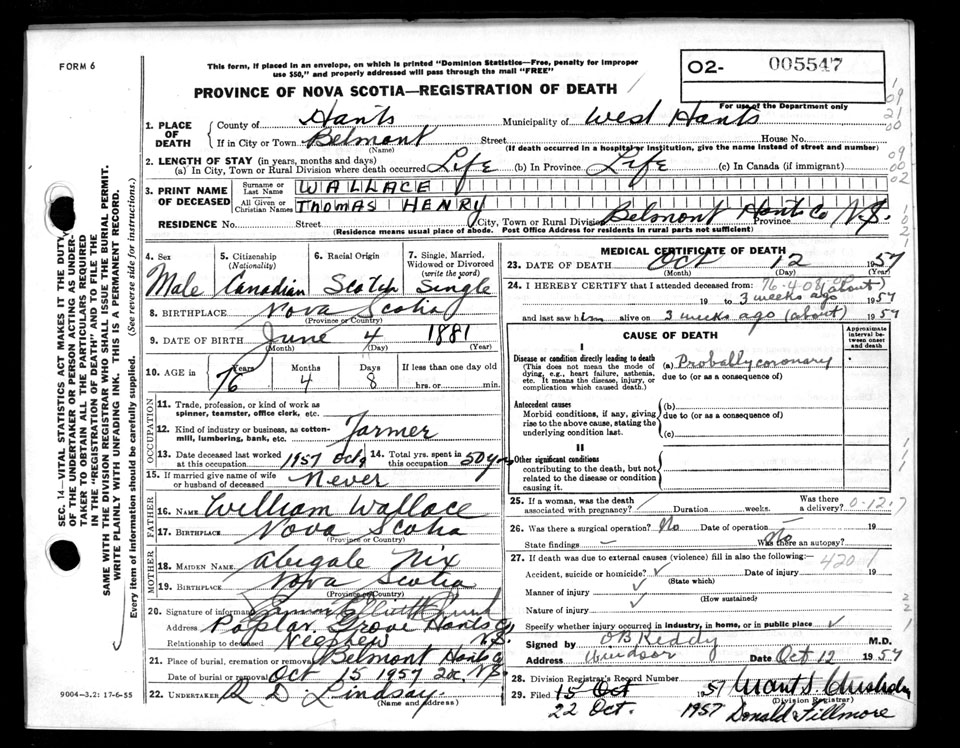 FORM 6
This form, if placed in an envelope, on which is printed "Dominion Statistics—Free, penalty for improper
use $50," and properly addressed will pass through the mail "FREE"
02- 005547
PROVINCE OF NOVA SCOTIA—REGISTRATION OF DEATH
For use of the Department only
1. PLACE OF DEATH
County of Hants Municipality of West Hants
If in City or Town Belmont Street House No.
(Name) (If death occurred in a hospital or institution, give the name instead of street and number)
2. LENGTH OF STAY (in years, months and days)
(a) In City, Town or Rural Division where death occurred Life (b) In Province Life (c) In Canada (if immigrant)
3. PRINT NAME OF DECEASED
Surname or Last Name WALLACE
All Given or Christian Names THOMAS HENRY
RESIDENCE No. Street City, Town or Rural Division Belmont Hants Co Province N.S.
(Residence means usual place of abode. Post Office Address for residents in rural parts not sufficient)
4. Sex Male
5. Citizenship (Nationality) Canadian
6. Racial Origin Scotch
7. Single, Married, Widowed or Divorced (write the word) Single
8. BIRTHPLACE Nova Scotia
(Province or Country)
9. DATE OF BIRTH June 4 1881
(Month) (Day) (Year)
10. AGE in Years Months Days If less than one day old
76 4 8 hrs. or min.
OCCUPATION
11. Trade, profession, or kind of work as spinner, teamster, office clerk, etc.
12. Kind of industry or business, as cotton-mill, lumbering, bank, etc. Farmer
13. Date deceased last worked at this occupation 1957 Oct 14. Total yrs. spent in this occupation 50 yrs
15. If married give name of wife or husband of deceased Never
FATHER
16. NAME William Wallace
17. BIRTHPLACE Nova Scotia
(Province or Country)
MOTHER
18. MAIDEN NAME Abigale Nix
19. BIRTHPLACE Nova Scotia
(Province or Country)
20. Signature of informant
Address Poplar Grove Hants Co N.S.
Relationship to deceased Neephew
21. Place of burial, cremation or removal Belmont Hants Co
Date of burial or removal Oct 15 1957 N.S.
22. UNDERTAKER R D. Lindsay.
(Name and address)
MEDICAL CERTIFICATE OF DEATH
23. DATE OF DEATH Oct 12 1957
(Month) (Day) (Year)
24. I HEREBY CERTIFY that I attended deceased from: 76-4-08 (about)
19 to 3 weeks ago 1957
and last saw him alive on 3 weeks ago (about) 1957
CAUSE OF DEATH
Approximate interval between onset and death
I
Disease or condition directly leading to death
(This does not mean the mode of dying, e.g., heart failure, asthenia, etc. It means the disease, injury, or complication which caused death.)
(a) Probably coronary
due to (or as a consequence of)
Antecedent causes
Morbid conditions, if any, giving rise to the above cause, stating the underlying condition last.
(b)
due to (or as a consequence of)
(c)
II
Other significant conditions
contributing to the death, but not related to the disease or condition causing it
25. If a woman, was the death associated with pregnancy? Duration weeks. Was there a delivery? 0-12-7
26. Was there a surgical operation? No Date of operation — 19
State findings — Was there an autopsy? No
27. If death was due to external causes (violence) fill in also the following:- 420 1
Accident, suicide or homicide? ✓ Date of injury 19
(State which)
Manner of injury ✓
(How sustained)
Nature of injury ✓
Specify whether injury occurred in industry, in home, or in public place ✓
Signed by O B Keddy M.D.
Address Windsor Date Oct 12 1957
28. Division Registrar's Record Number
29. Filed 15 Oct 1957 Grant S. Chisholm
(Division Registrar)
22 Oct. 1957 Donald Fillmore
SEC. 14—VITAL STATISTICS ACT MAKES IT THE DUTY
OF THE UNDERTAKER OR PERSON ACTING AS UNDER-
TAKER TO OBTAIN ALL THE PARTICULARS REQUIRED
IN THE "REGISTRATION OF DEATH" AND TO FILE THE
SAME WITH THE DIVISION REGISTRAR WHO SHALL ISSUE THE BURIAL PERMIT.
WRITE PLAINLY WITH UNFADING INK. THIS IS A PERMANENT RECORD.
Every item of information should be carefully supplied. (See reverse side for instructions.)
9004—3.2: 17-6-55